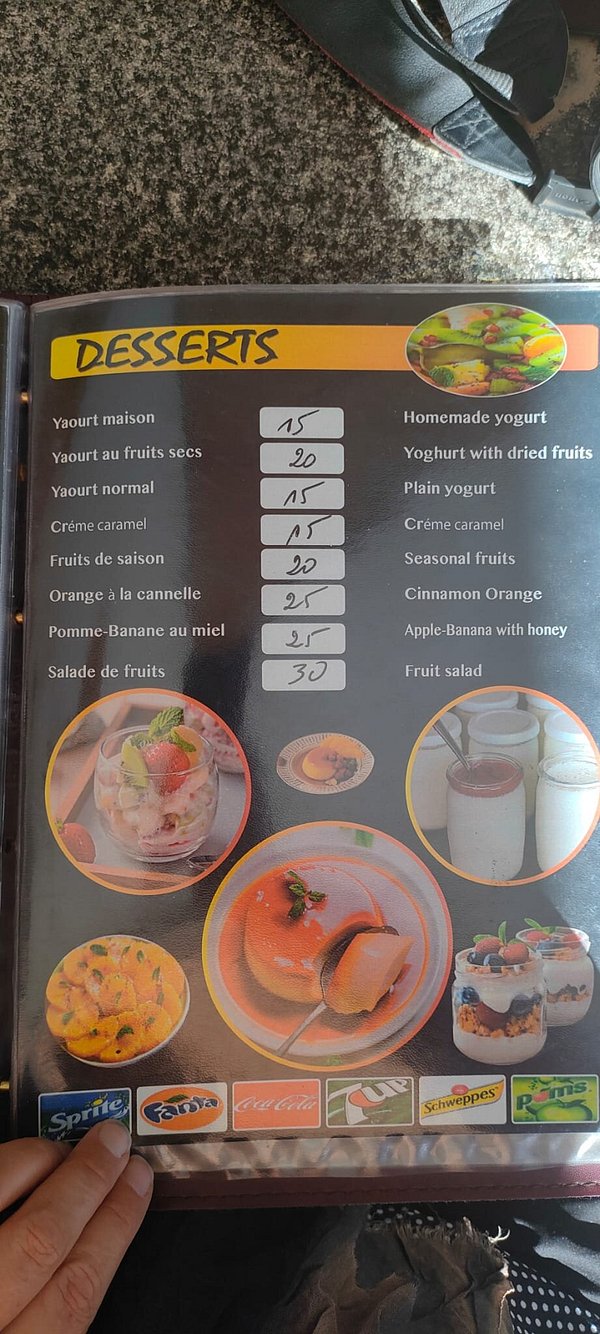 DESSERTS
Yaourt maison 15 Homemade yogurt
Yaourt au fruits secs 20 Yoghurt with dried fruits
Yaourt normal 15 Plain yogurt
Créme caramel 15 Créme caramel
Fruits de saison 20 Seasonal fruits
Orange à la cannelle 25 Cinnamon Orange
Pomme-Banane au miel 25 Apple-Banana with honey
Salade de fruits 30 Fruit salad
Sprite Fanta Coca-Cola 7up Schweppes Poms